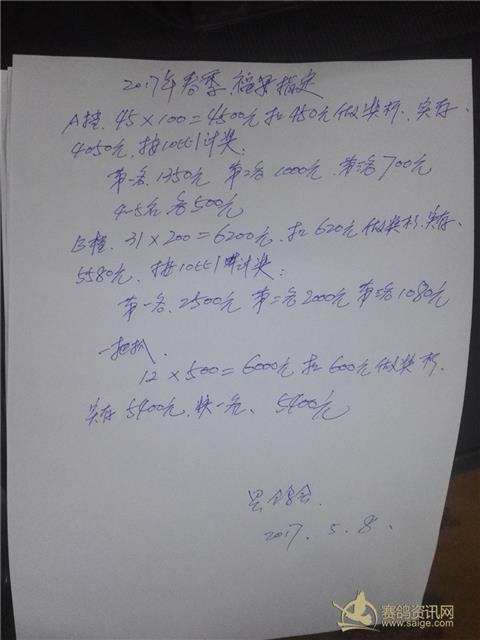 2017年春季 指定
A档.45×100=4500元扣450元做奖杯、实存
4050元,按10比1计奖:
第一名,1350元 第二名1000元、第三名700元
4-5名 各500元
B档.31×200=6200元,扣620元做奖杯,实存
5580元,按10比1计奖:
第一名、2500元 第二名2000元 第三名1080元
一把抓.
12×500=6000元 扣600元做奖杯,
实存5400元,奖一名、5400元
2017.5.8.
赛鸽资讯网
www.saige.com